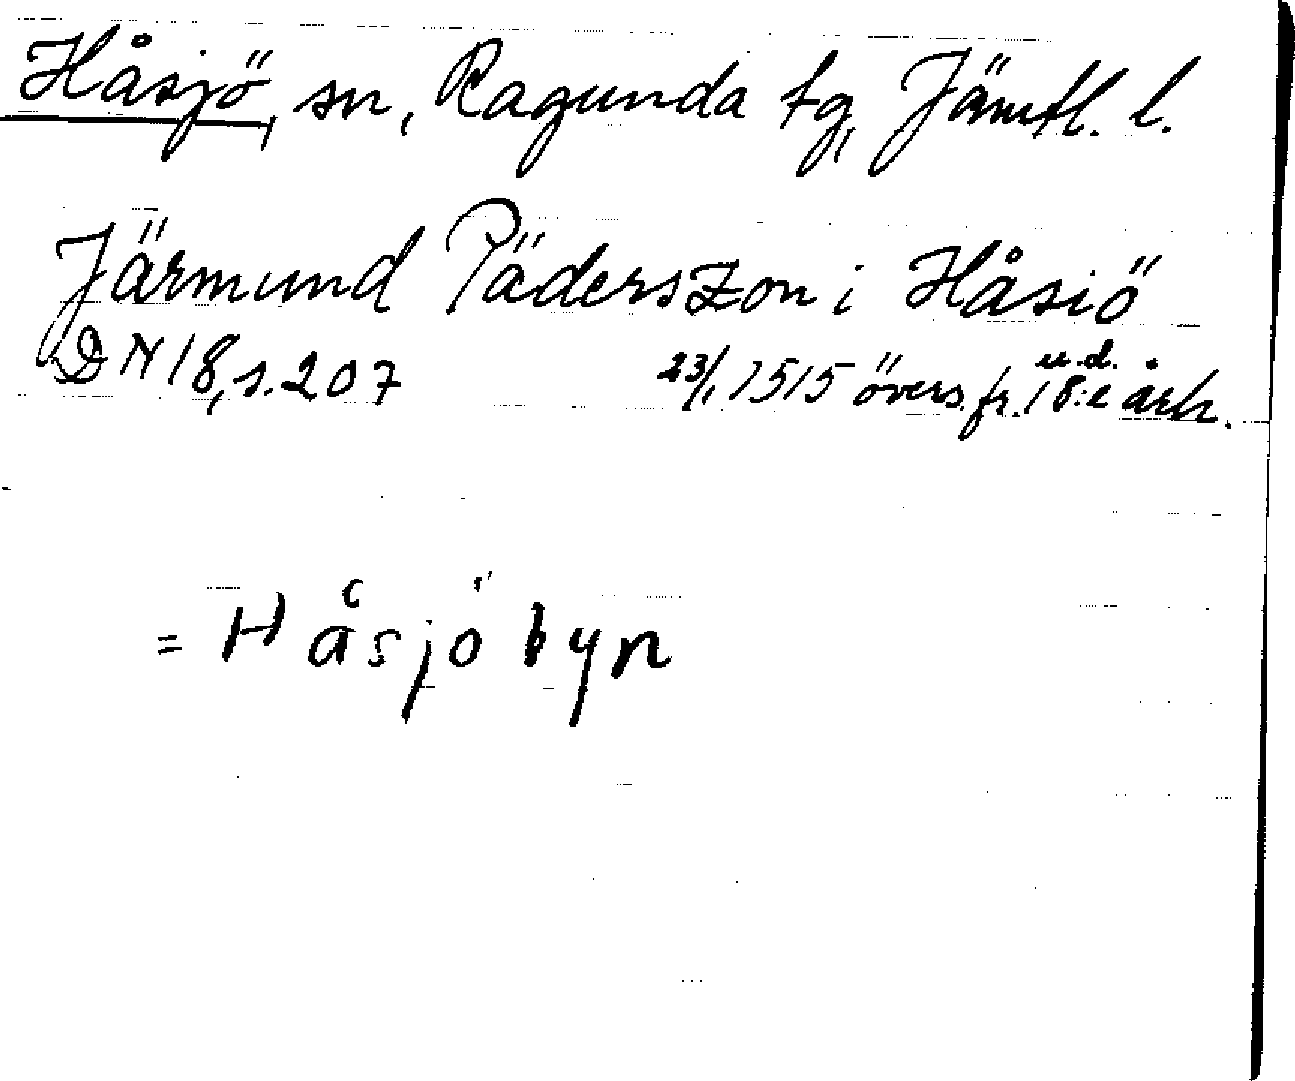 Håsjö, sn, Ragunda tg, Jämtl. l.
Järmund Päderszon i Håsiö
DN 18, s. 207 23/1 1515 övers. fr. 18:e årh.
u.d.
= Håsjöbyn